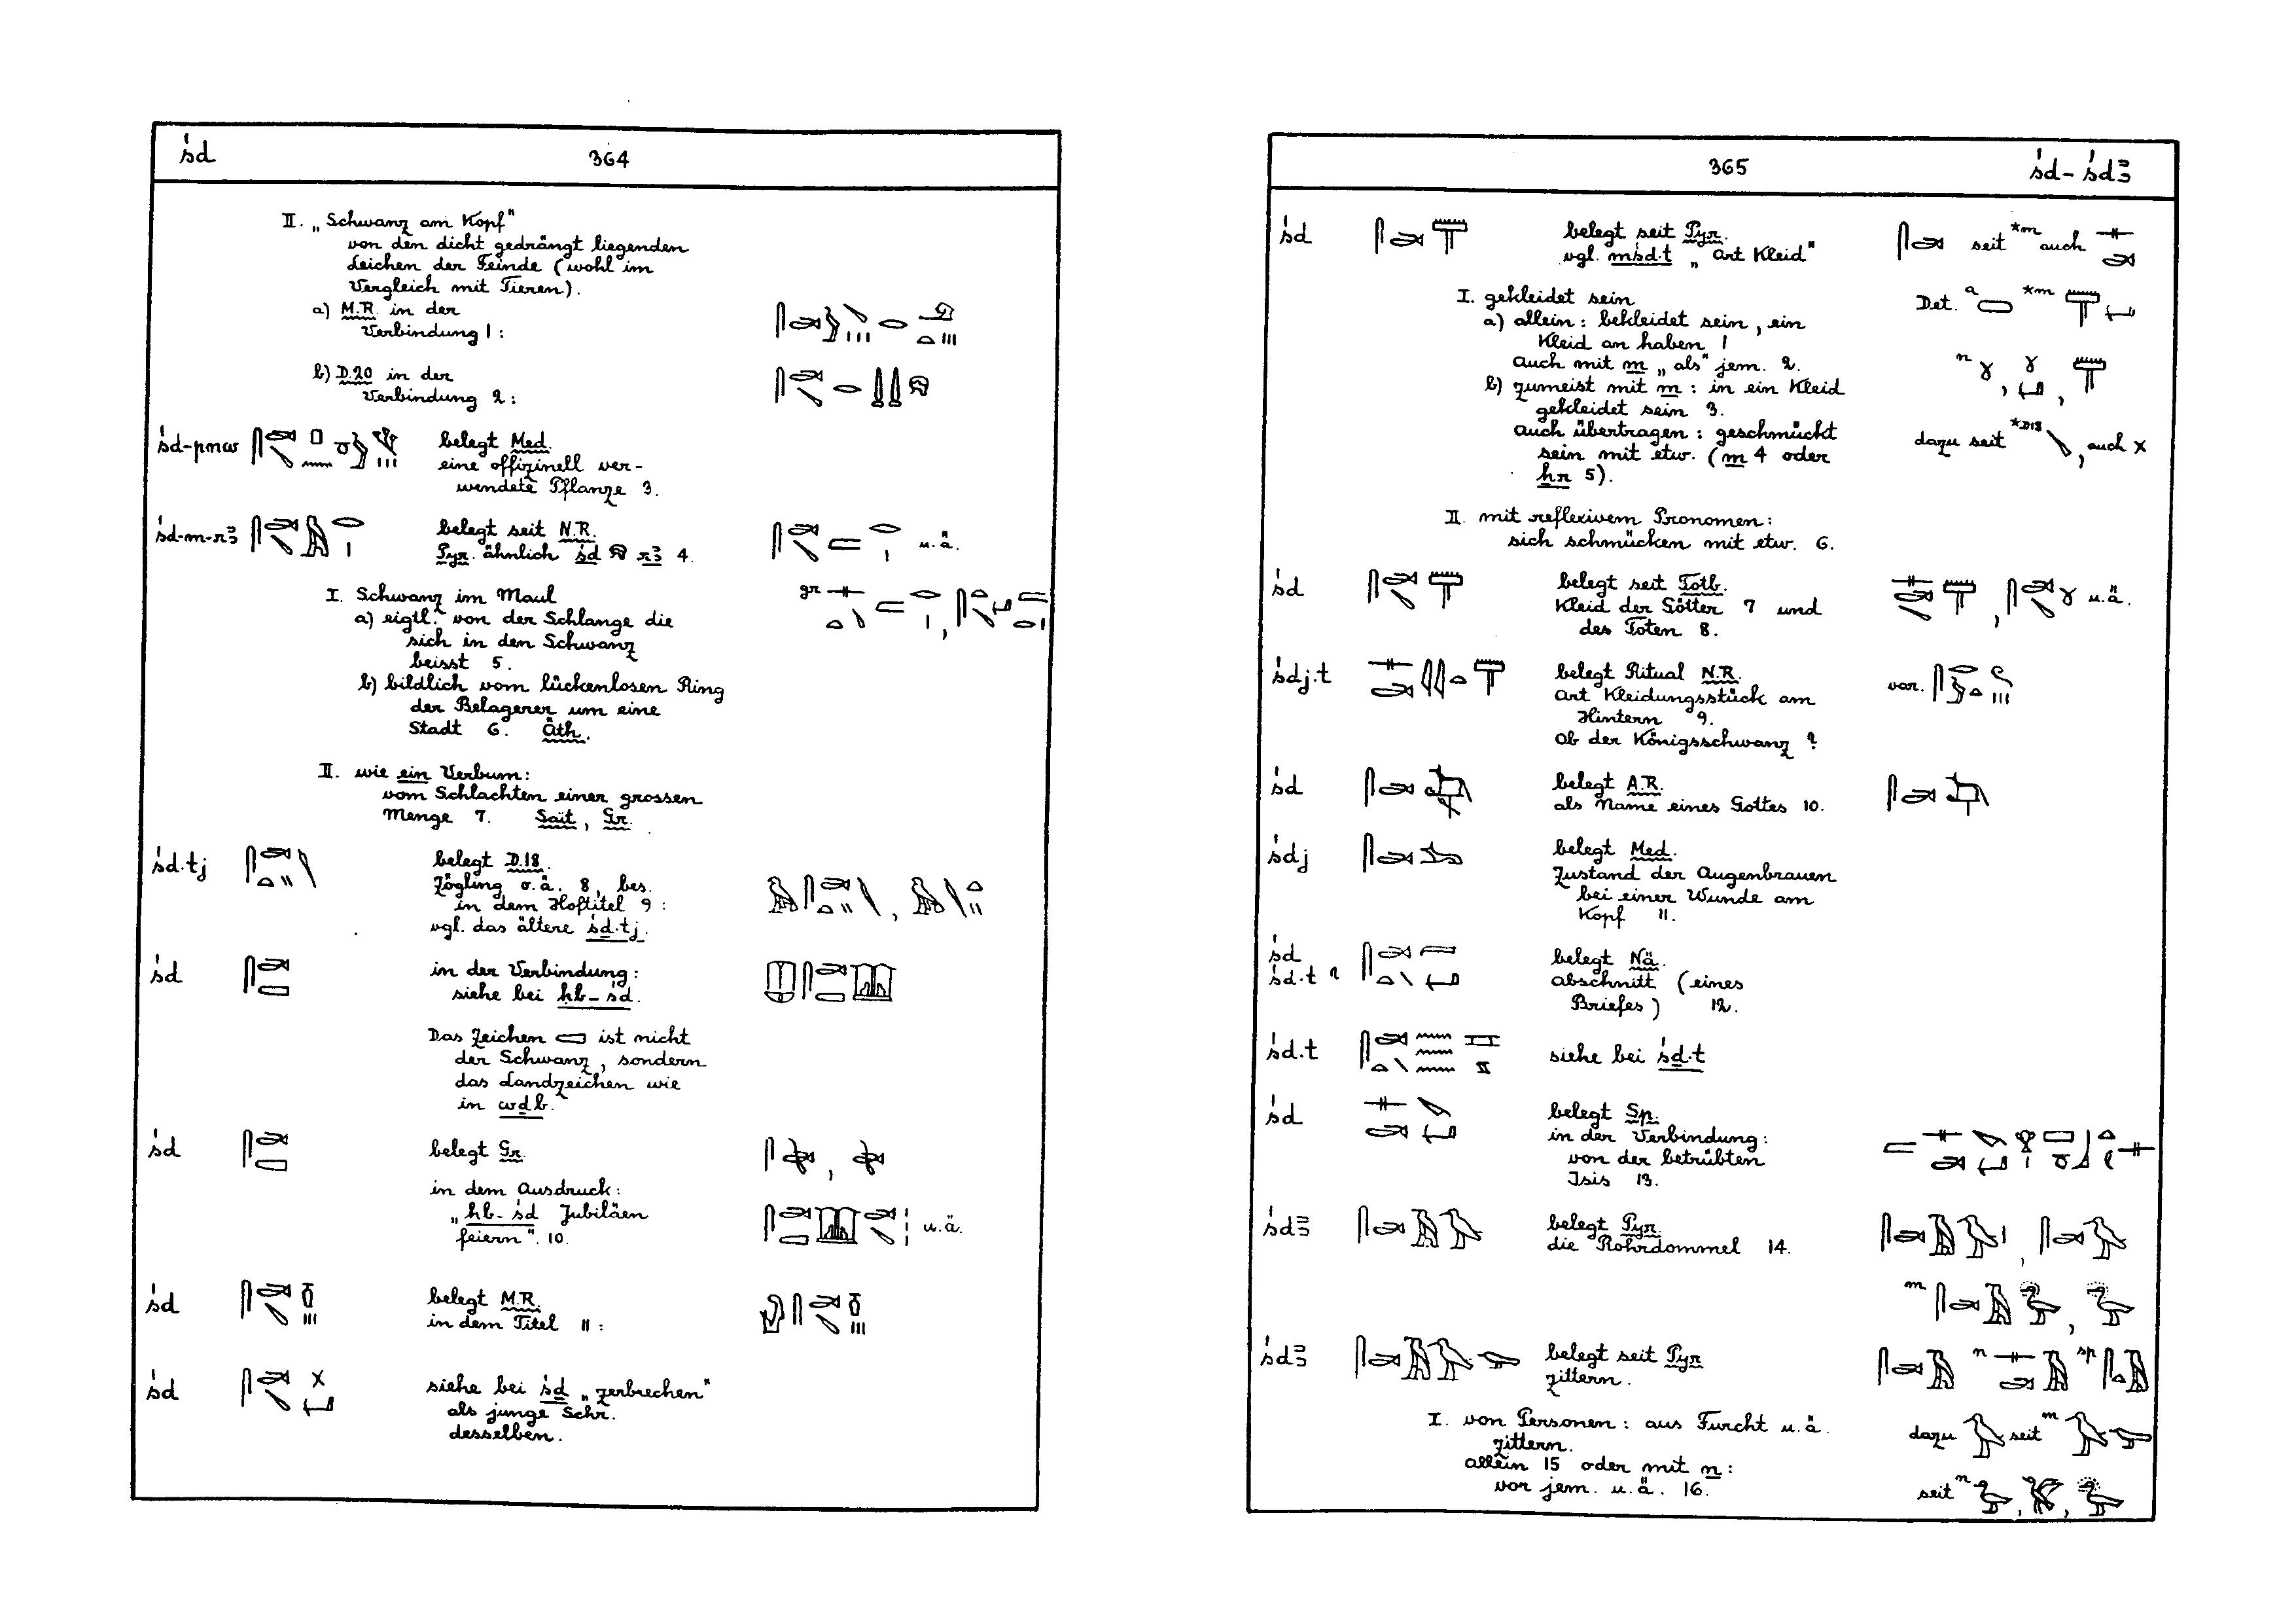 śd
364
II. „Schwanz am Kopf"
von den dicht gedrängt liegenden
Leichen der Feinde (wohl im
Vergleich mit Tieren).
a) M.R. in der
Verbindung 1 :
b) D.20 in der
Verbindung 2 :
śd-pnw
belegt Med.
eine offizinell ver-
wendete Pflanze 3.
śd-m-rꜣ
belegt seit N.R.
Pyr. ähnlich śd rꜣ 4.
u.ä.
I. Schwanz im Maul
gr
a) eigtl. von der Schlange die
sich in den Schwanz
beisst 5.
b) bildlich vom lückenlosen Ring
der Belagerer um eine
Stadt 6. Äth.
II. wie ein Verbum:
vom Schlachten einer grossen
Menge 7. Sait, Gr.
śd.tj
belegt D.18.
Zögling o.ä. 8, bes.
in dem Hoftitel 9 :
vgl. das ältere śḏ.tj.
śd
in der Verbindung:
siehe bei ḥb-śd.
Das Zeichen ist nicht
der Schwanz, sondern
das Landzeichen wie
in wḏb.
śd
belegt Gr.
in dem Ausdruck:
„ḥb-śd Jubiläen
feiern". 10.
u.ä.
śd
belegt M.R.
in dem Titel 11 :
śd
siehe bei śḏ „zerbrechen"
als junge Schr.
desselben.
365
śd- śdꜣ
śd
belegt seit Pyr.
vgl. mśd.t „Art Kleid"
seit *m auch
I. gekleidet sein
Det. a *m
a) allein : bekleidet sein, ein
Kleid an haben 1
auch mit m „als" jem. 2.
n
b) zumeist mit m : in ein Kleid
gekleidet sein 3.
auch übertragen : geschmückt
sein mit etw. (m 4 oder
ẖr 5).
dazu seit *D18, auch x
II. mit reflexivem Pronomen:
sich schmücken mit etw. 6.
śd
belegt seit Totb.
Kleid der Götter 7 und
des Toten 8.
u.ä.
śdj.t
belegt Ritual N.R.
Art Kleidungsstück am
Hintern 9.
Ob der Königsschwanz ?
var.
śd
belegt A.R.
als Name eines Gottes 10.
śdj
belegt Med.
Zustand der Augenbrauen
bei einer Wunde am
Kopf 11.
śd
śd.t ?
belegt Nä.
Abschnitt (eines
Briefes) 12.
śd.t
siehe bei śḏ.t
śd
belegt Sp.
in der Verbindung:
von der betrübten
Isis 13.
śdꜣ
belegt Pyr.
die Rohrdommel 14.
m
śdꜣ
belegt seit Pyr
zittern.
n sp
I. von Personen : aus Furcht u.ä.
zittern.
allein 15 oder mit n :
vor jem. u.ä. 16.
dazu seit m
seit n